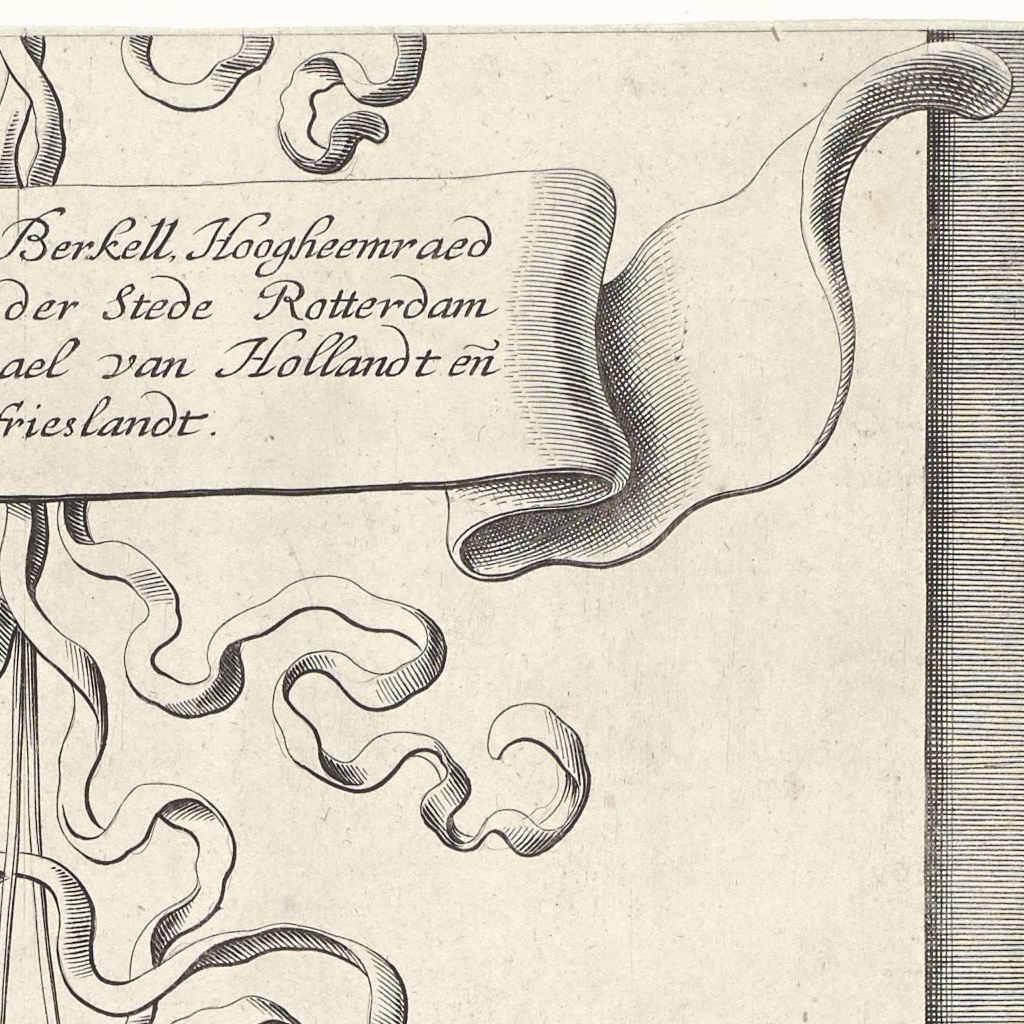 Berkell, Hoogheemraed
der Stede Rotterdam
ael van Hollandt en̄
frieslandt.